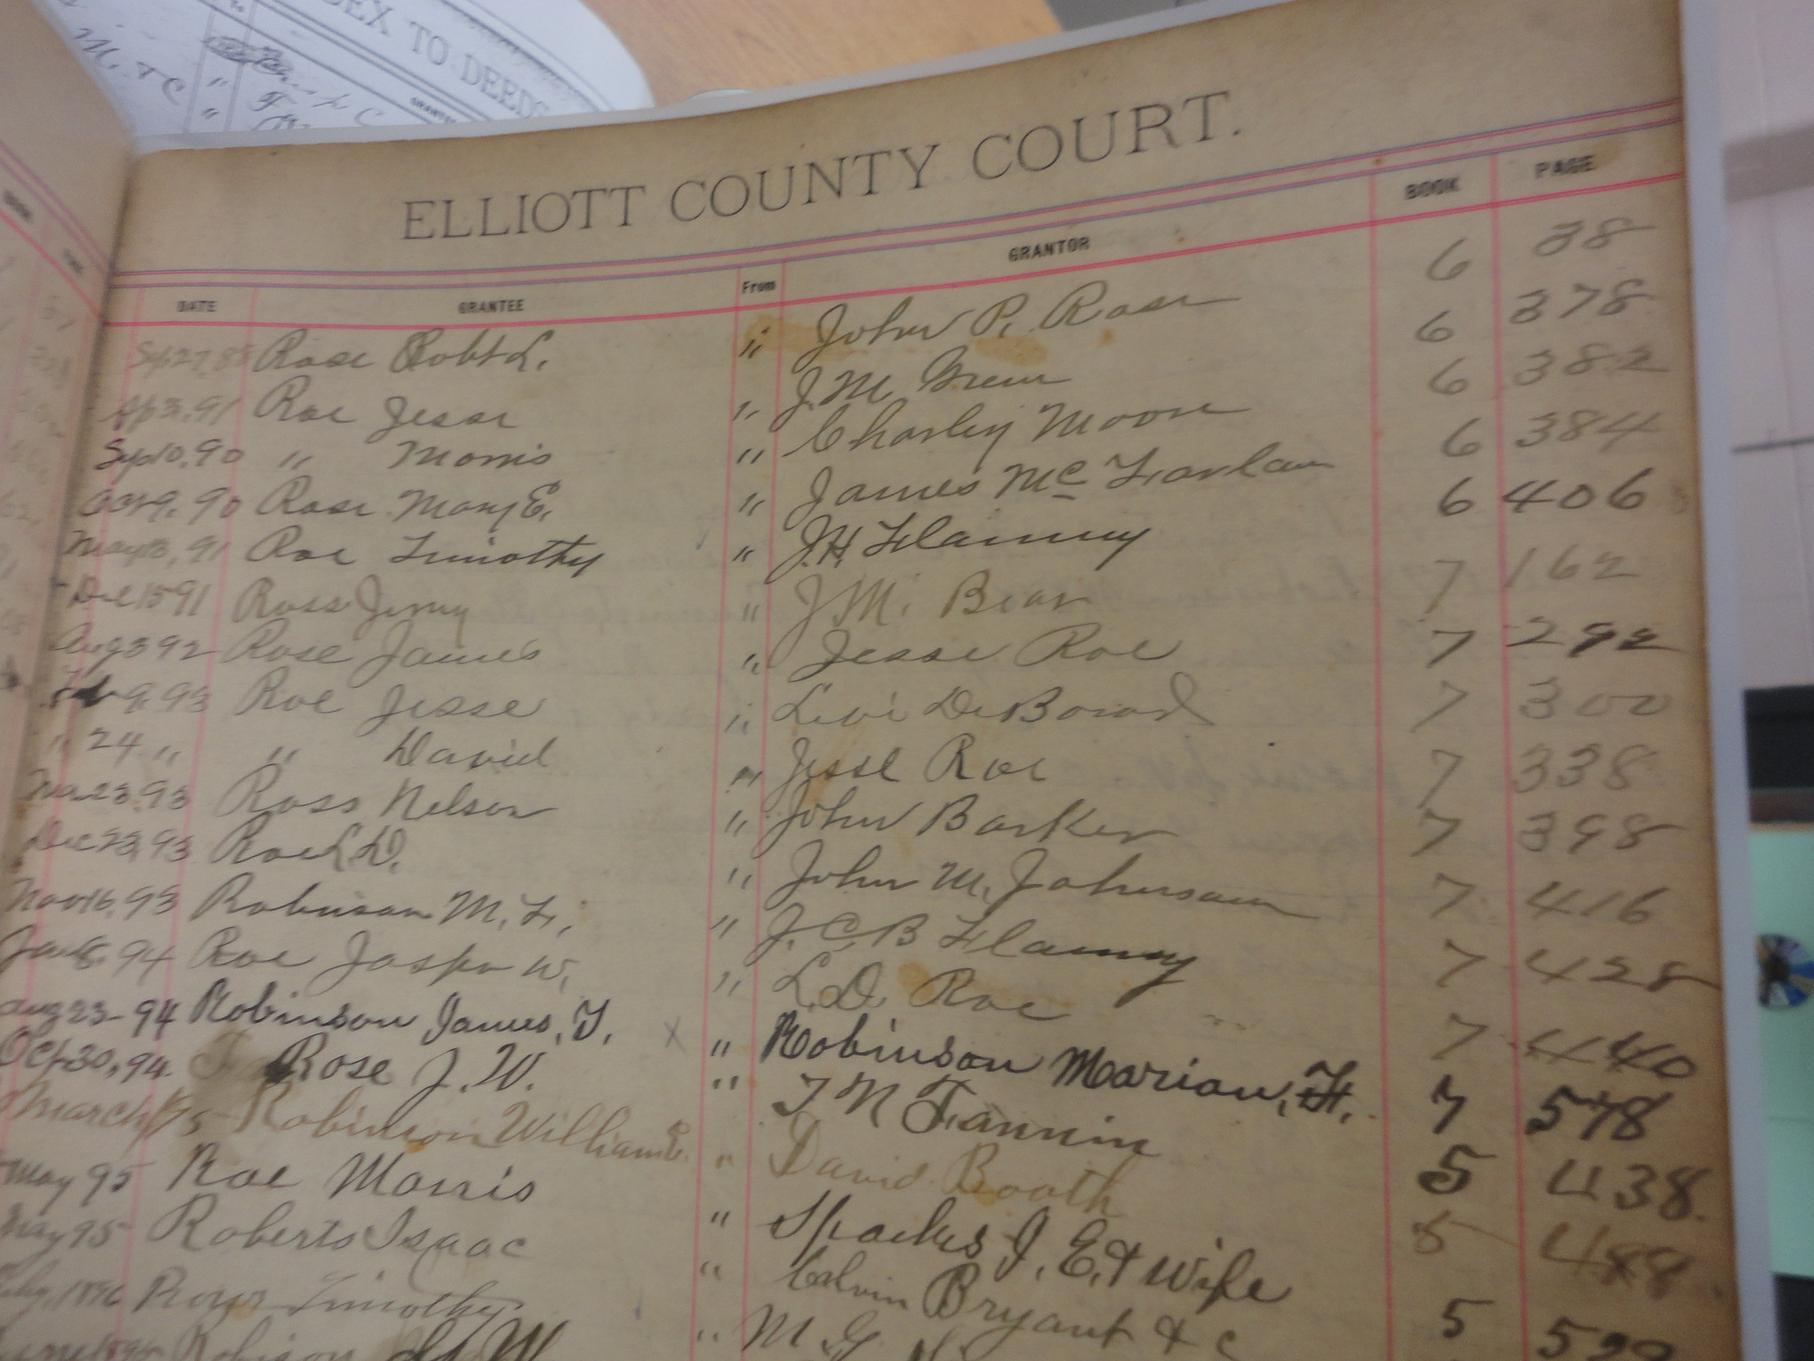 EX TO DEEDS
M. & C
ELLIOTT COUNTY COURT.
DATE GRANTEE From GRANTOR BOOK PAGE
Rose Robt L. " John P. Rose 6 38
Ap 3, 91 Roe Jesse " J. M. Green 6 378
Sep 10, 90 " Morris " Charley Moore 6 382
Oct 9, 90 Rose Mary E. " James McFarlan 6 384
May 18, 91 Roe Timothy " J. H. Flannery 6 406
Dec 15 91 Ross Jenny " J. M. Bear 7 162
Aug 3 92 Rose James " Jesse Roe 7 292
Feb 9, 93 Roe Jesse " Levi DeBoard 7 300
" 24 " " David " Jesse Roe 7 338
23, 93 Ross Nelson " John Barker 7 398
Dec 23, 93 Roe L. D. " John M. Johnson 7 416
Nov 16, 93 Robinson M. F. " J. C. B Flannery 7 428
Jan 8, 94 Roe Jasper W. " L. D. Roe 7 440
Aug 23-94 Robinson James. T. X " Robinson Marion. H. 7 578
Oct 30, 94. Rose J. W. " T N Fannin 5 438.
March Robinson William " David Booth 5 488
May 95 Roe Morris " Sparks J. E. & Wife 5
May 95 Roberts Isaac " Calvin Bryant & C
1896 Timothy " M. G.
Robison W